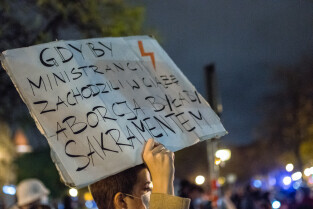 GDYBY
MINISTROWIE
ZACHODZILI W CIĄŻĘ
ABORCJA BYŁABY
SAKRAMENTEM